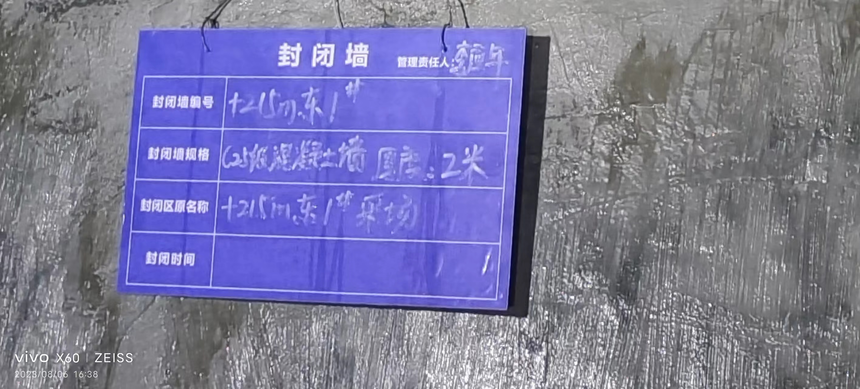 封闭墙
管理责任人:
封闭墙编号 +215m东1#
封闭墙规格 C25级混凝土墙 厚度:2米
封闭区原名称 +215m东1#采场
封闭时间
vivo X60 | ZEISS
2023/08/06 16:38